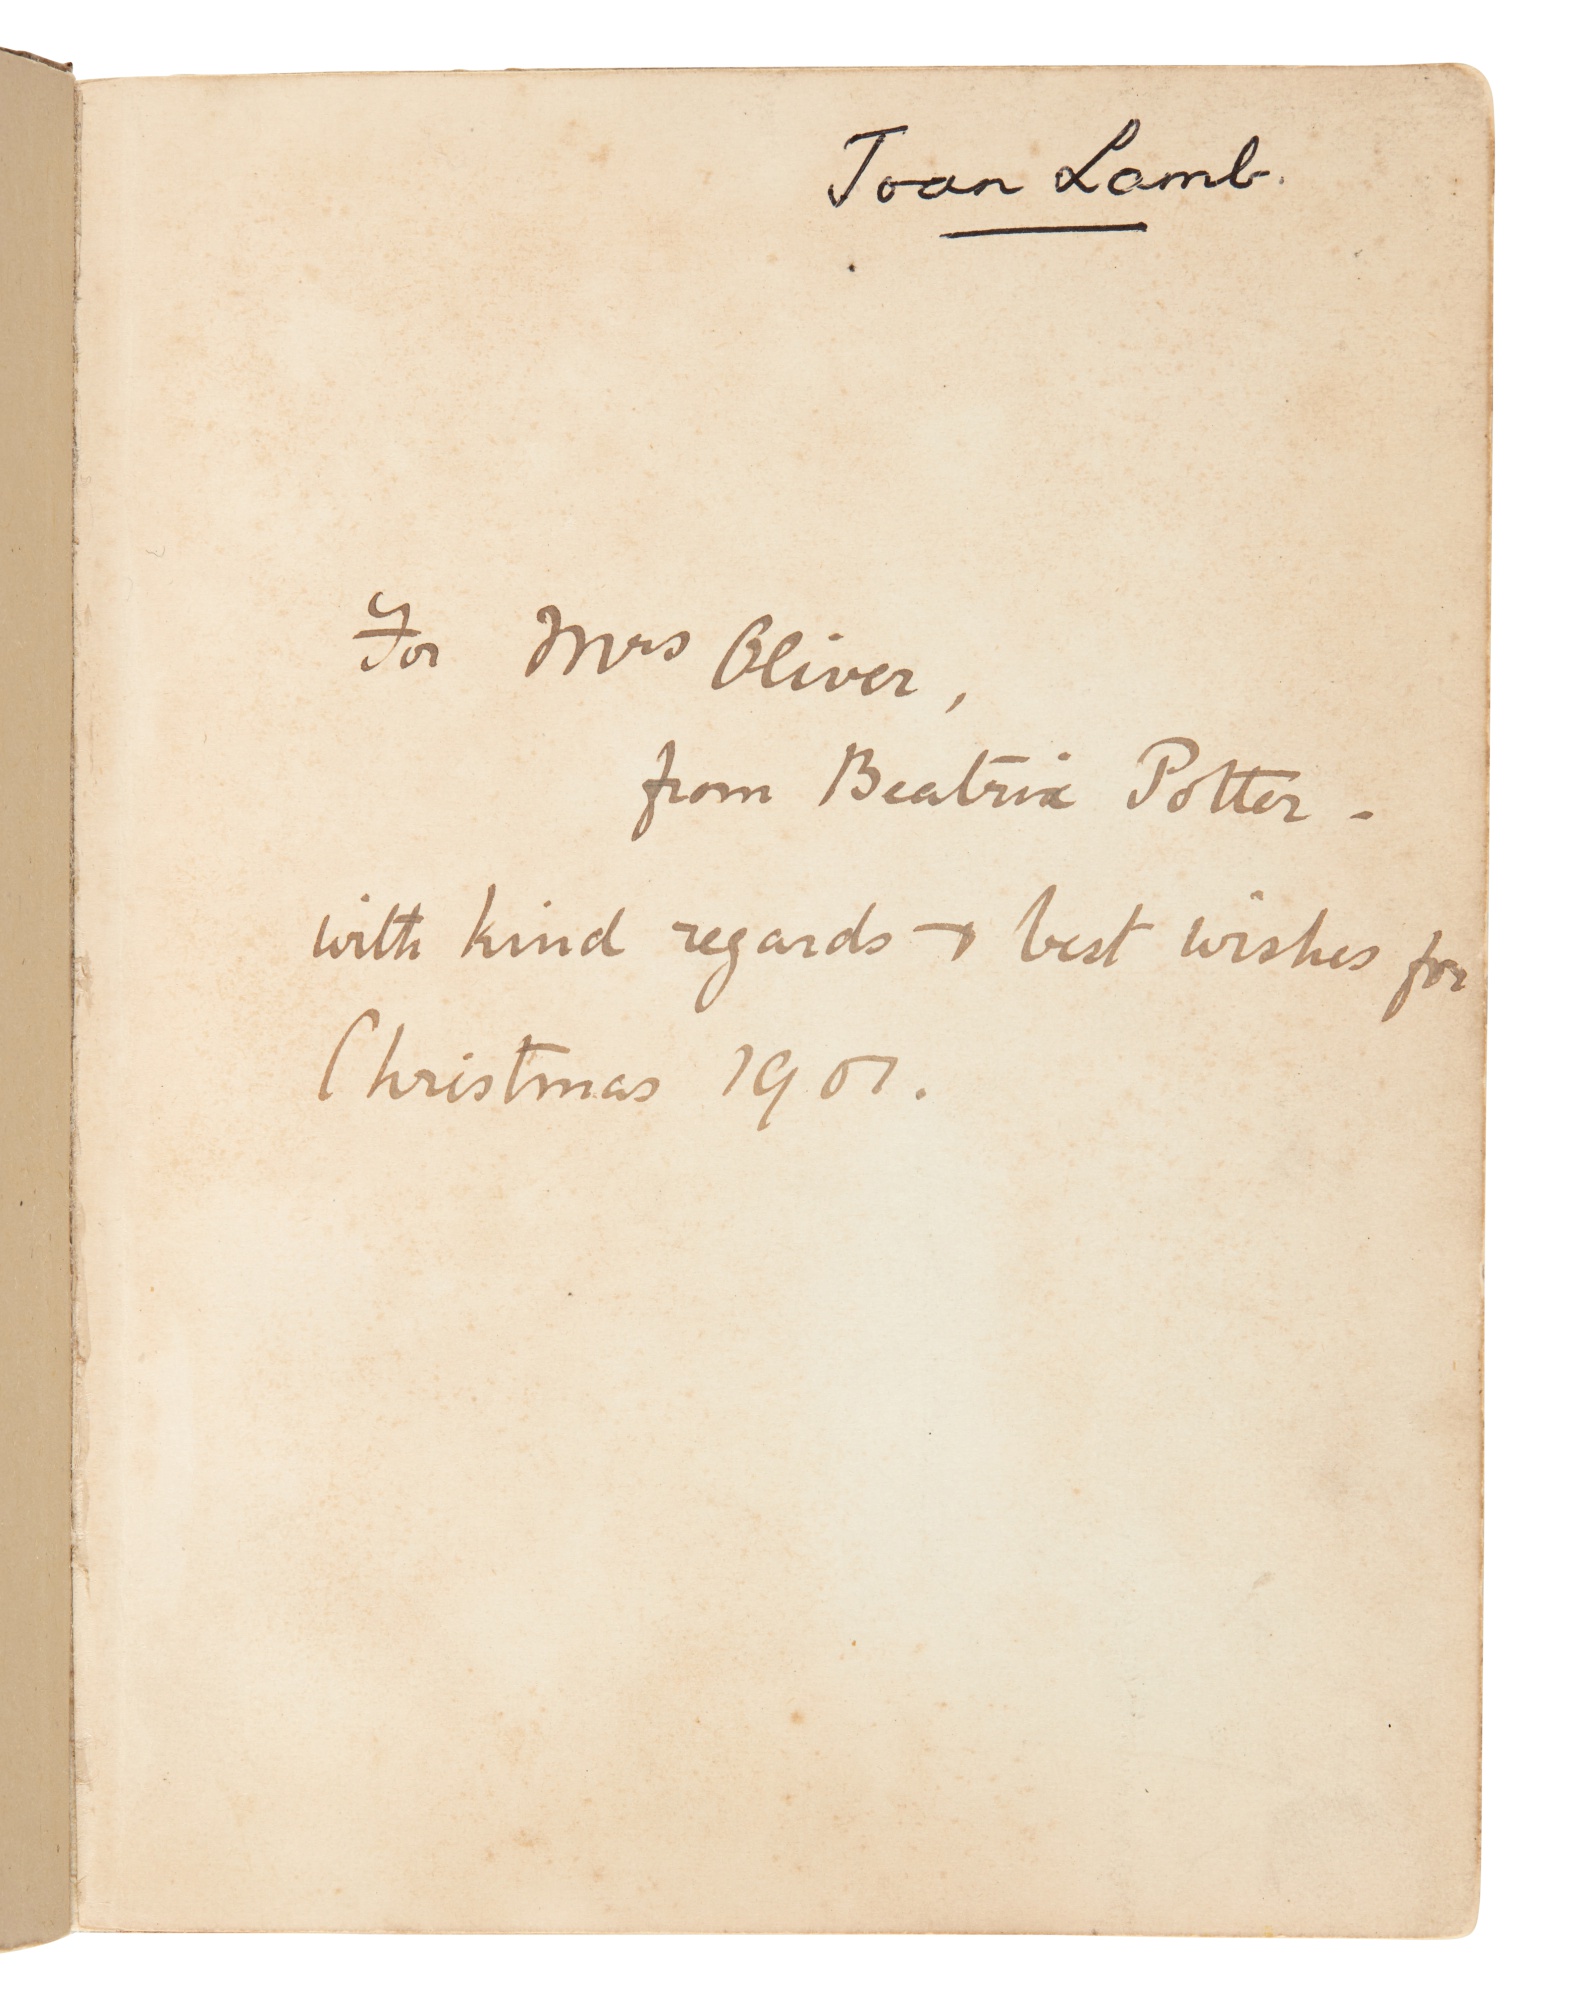 Joan Lamb.
For Mrs Oliver,
from Beatrix Potter -
with kind regards & best wishes for
Christmas 1901.